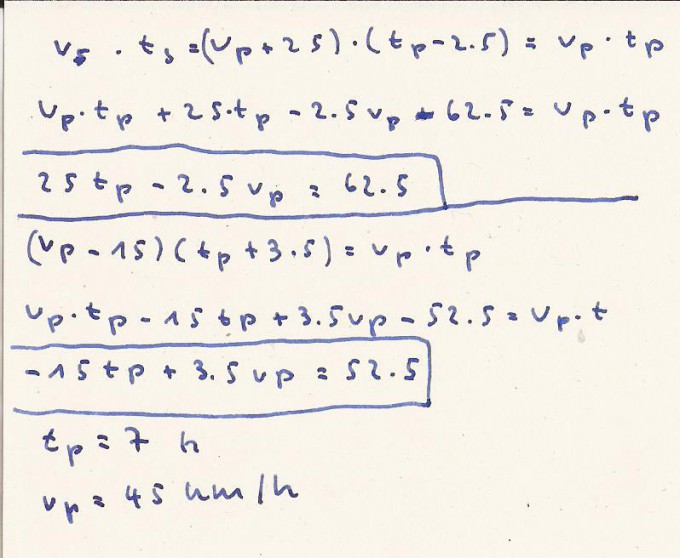 v₅ · t₅ = (vₚ + 25) · (tₚ - 2.5) = vₚ · tₚ
vₚ · tₚ + 25 · tₚ - 2.5 vₚ - 62.5 = vₚ · tₚ
25 tₚ - 2.5 vₚ = 62.5
(vₚ - 15) (tₚ + 3.5) = vₚ · tₚ
vₚ · tₚ - 15 tp + 3.5 vp - 52.5 = vₚ · t
-15 tp + 3.5 vp = 52.5
tₚ = 7 h
vₚ = 45 km/h